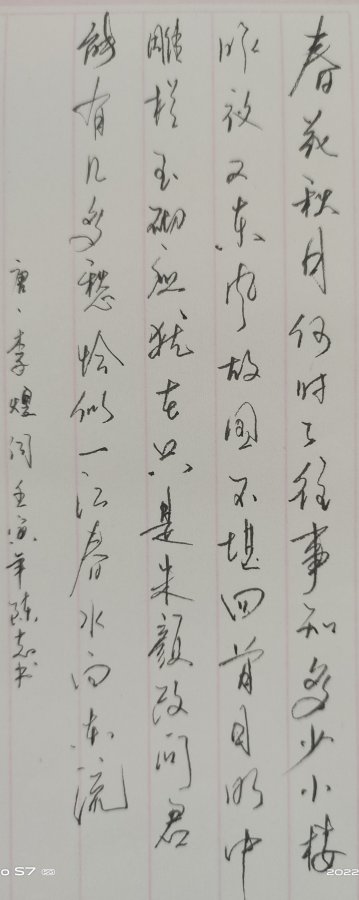 春花秋月何时了往事知多少小楼
昨夜又东风故国不堪回首月明中
雕栏玉砌应犹在只是朱颜改问君
能有几多愁恰似一江春水向东流
唐、李煜词壬寅年陈志书
o S7
2022